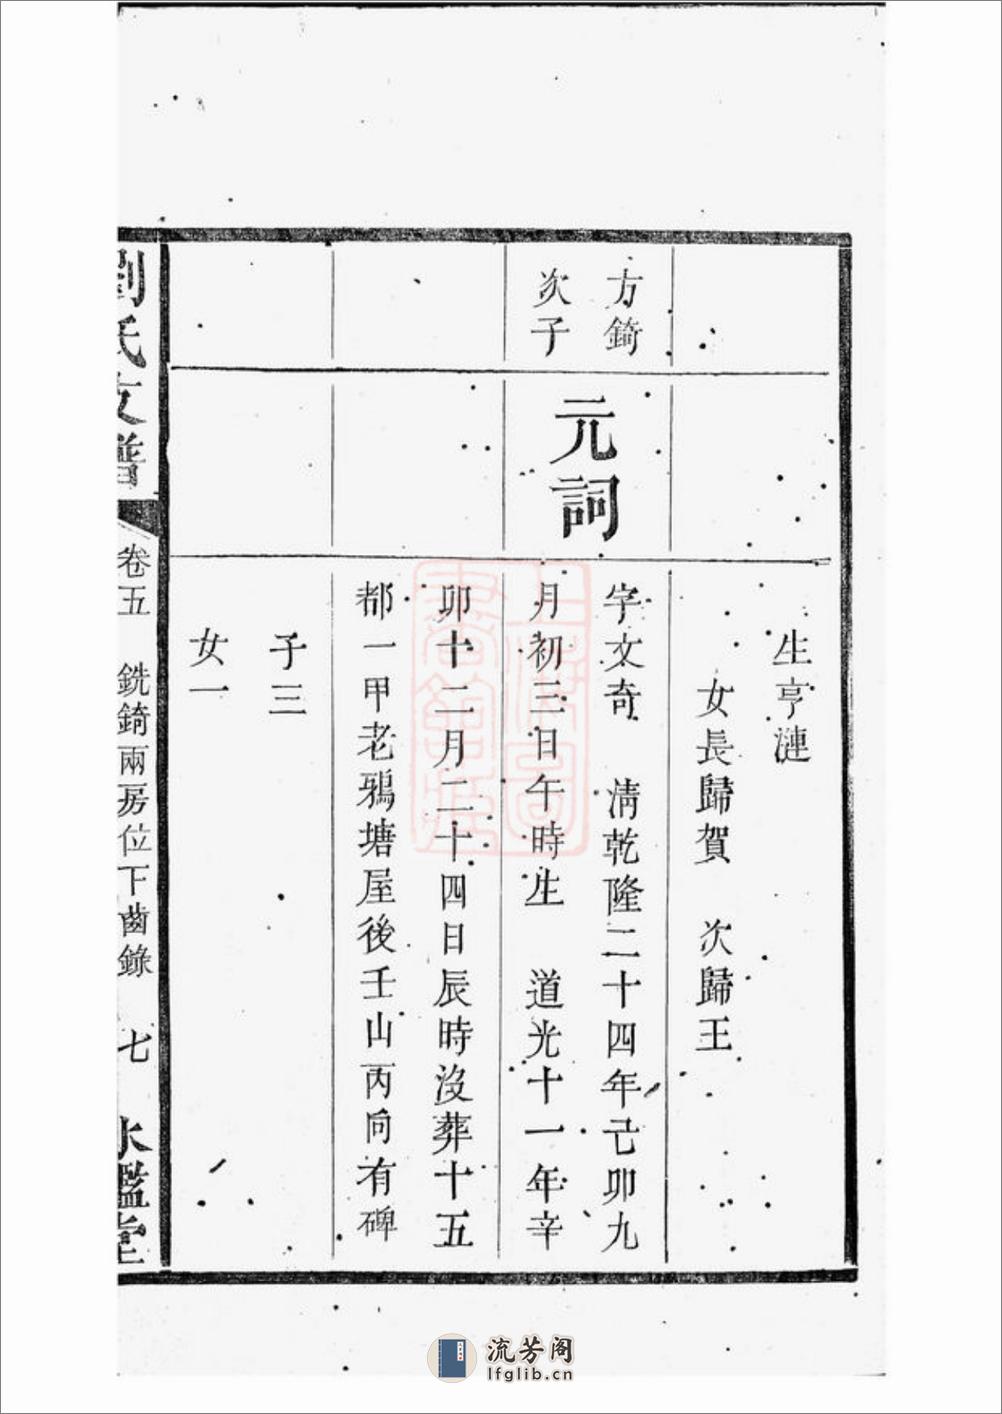 生亨漣
女長歸賀　次歸王
方錡
次子
元詞
字文奇　清乾隆二十四年己卯九
月初三日午時生　道光十一年辛
卯十二月二十四日辰時沒葬十五
都一甲老鴉塘屋後壬山丙向有碑
子三
女一
劉氏支譜
卷五　銑錡兩房位下齒錄　七
氷鑑堂
上海圖
書館藏
流芳阁
lfglib.cn